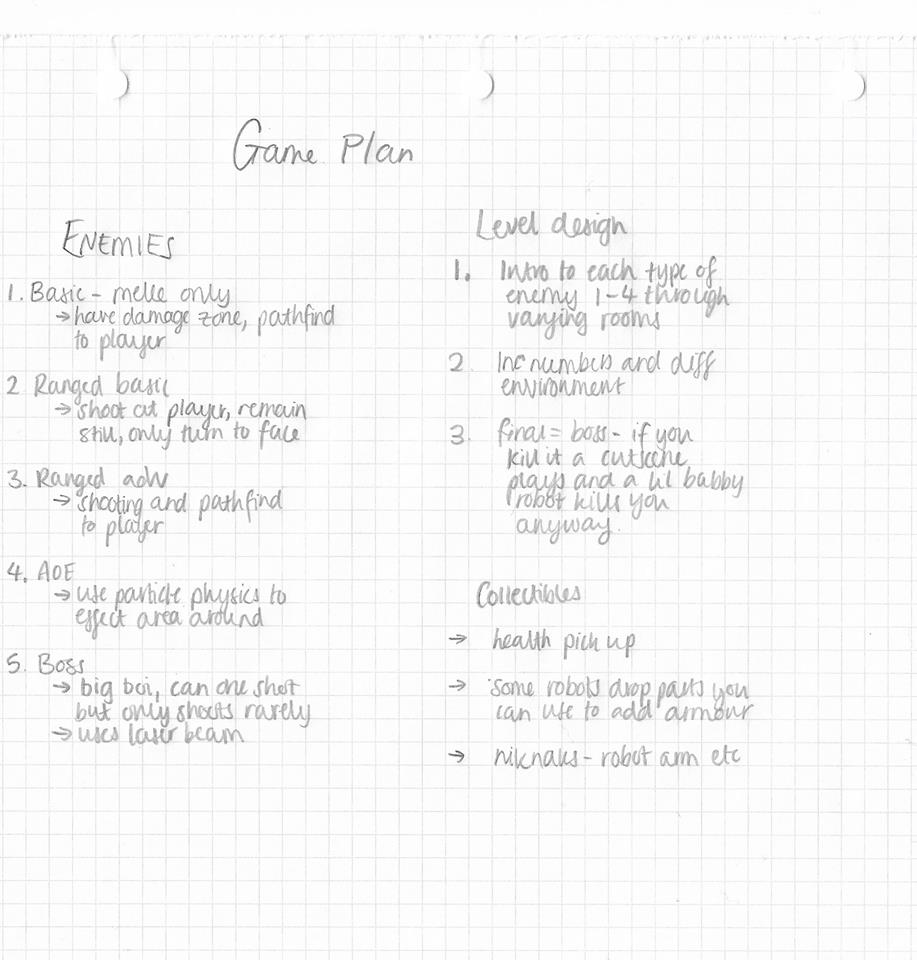 Game Plan
ENEMIES
1. Basic - melle only
→ have damage zone, pathfind
to player
2 Ranged basic
→ shoot at player, remain
still, only turn to face
3. Ranged adv
→ shooting and pathfind
to player
4. AOE
→ use particle physics to
effect area around
5. Boss
→ big boi, can one shot
but only shoots rarely
→ uses laser beam
Level design
1. Intro to each type of
enemy 1-4 through
varying rooms
2. Inc numbers and diff
environment
3. final = boss - if you
kill it a cutscene
plays and a lil babby
robot kills you
anyway.
Collectibles
→ health pick up
→ some robots drop parts you
can use to add armour
→ niknaks - robot arm etc